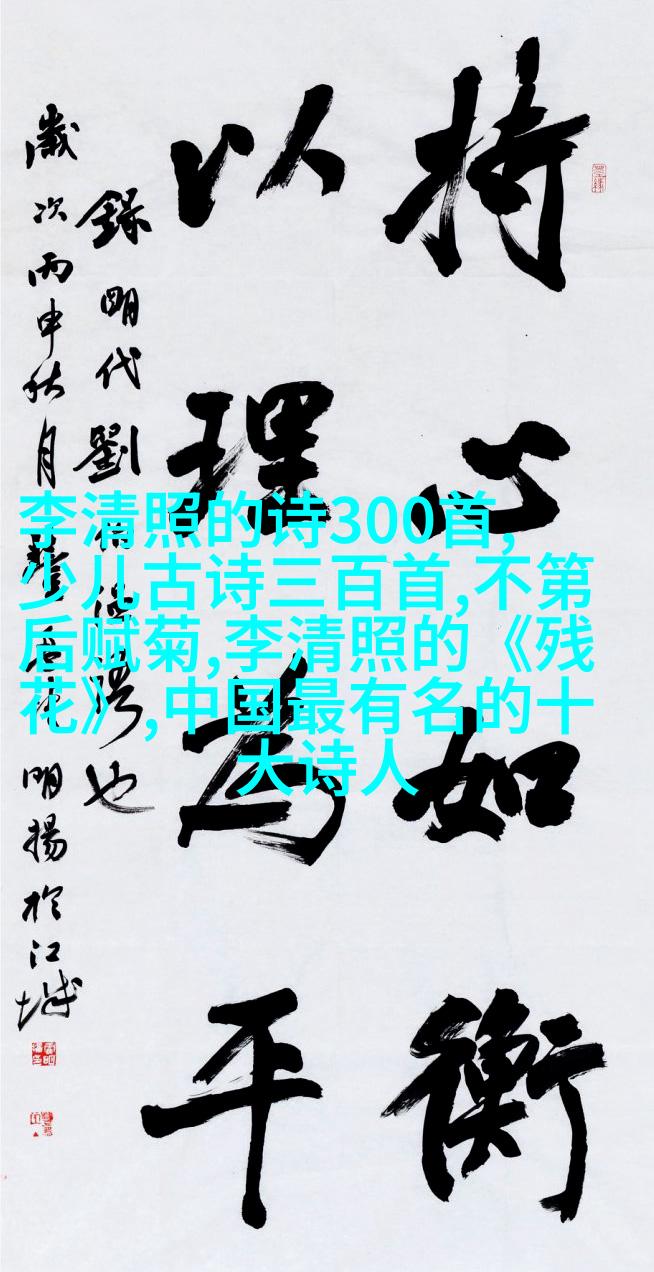 持心如衡
以理為平
錄明代劉也
歲次丙申秋月明揚於江城
李清照的诗300首,
少儿古诗三百首,不第
后赋菊,李清照的《残
花》,中国最有名的十
大诗人